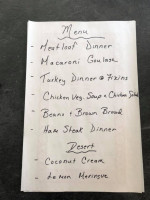 Menu
- Meatloaf Dinner
- Macaroni Goulash
- Turkey Dinner @ Fixins
- Chicken Veg. Soup & Chicken Salad
- Beans & Brown Bread
- Ham Steak Dinner
Desert
- Coconut Cream
- Lemon Meringue